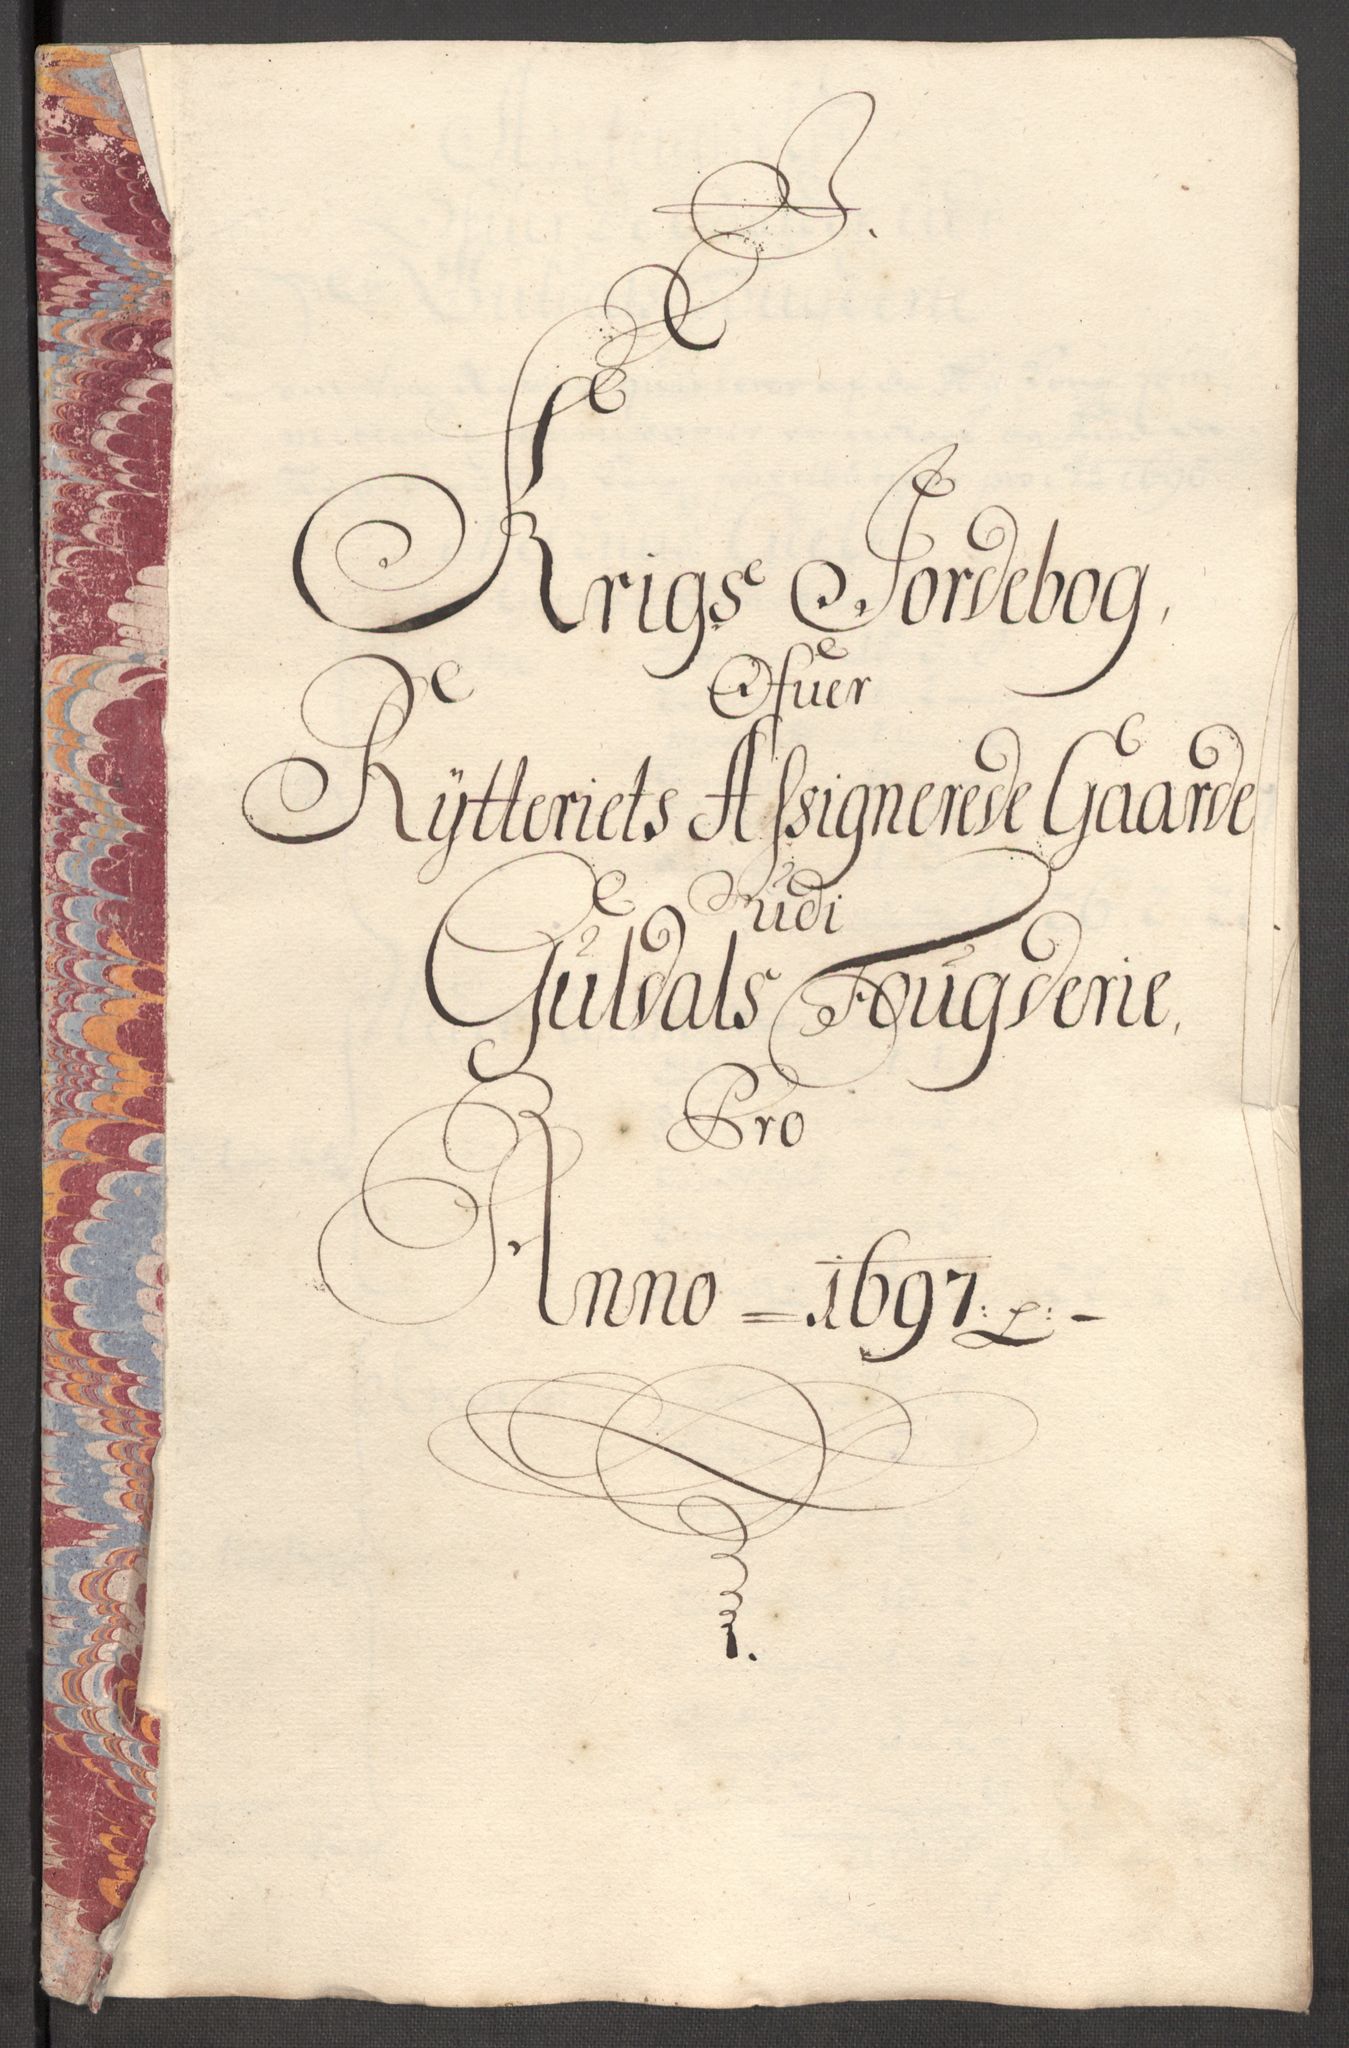 Krigs Jordebog,
Ofuer
Rÿtteriets Assignerede Gaarde
udi
Guldals Fougderie,
Pro
Anno = 1697: